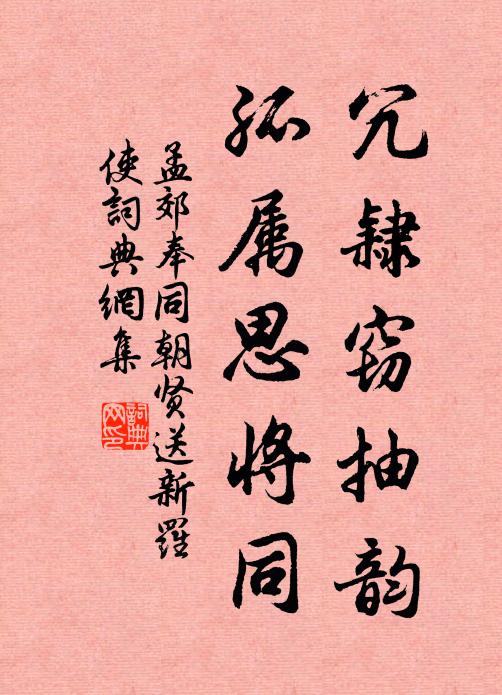 冗隸窃抽韵
孤属思将同
孟郊奉同朝贤送新羅
使詞典網集
詞典
网印